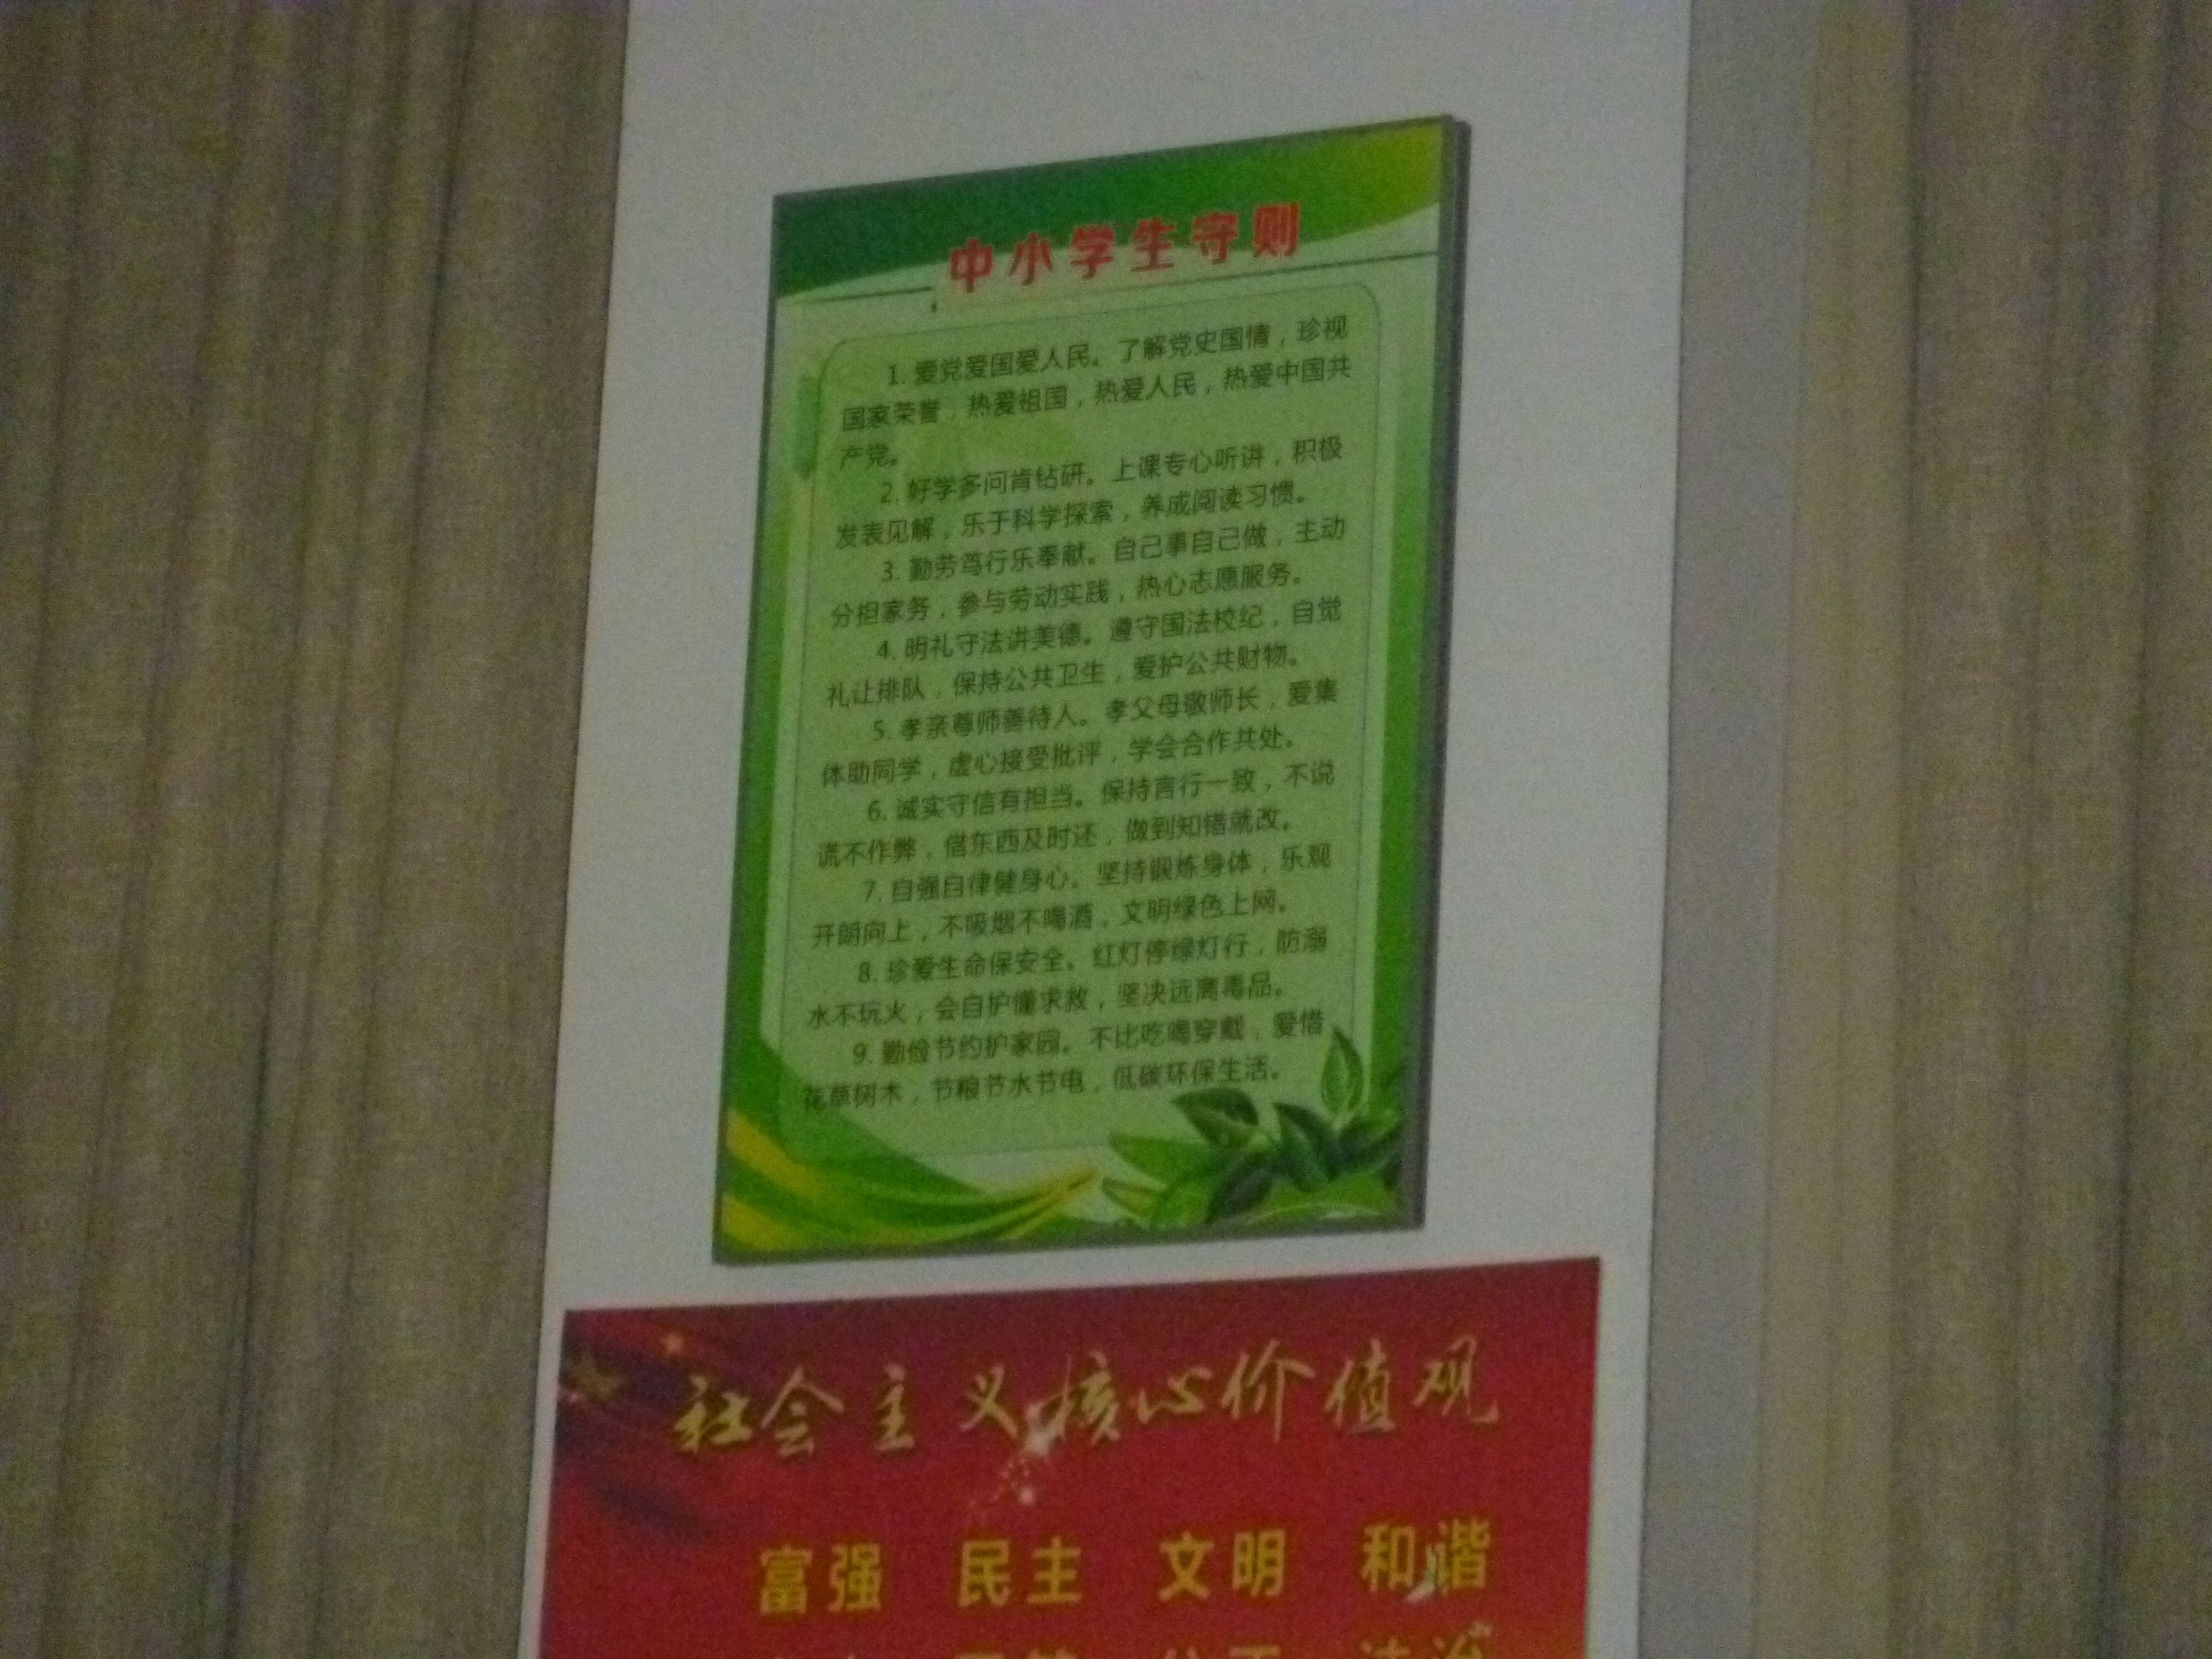 中小学生守则
1. 爱党爱国爱人民。了解党史国情，珍视
国家荣誉，热爱祖国，热爱人民，热爱中国共
产党。
2. 好学多问肯钻研。上课专心听讲，积极
发表见解，乐于科学探索，养成阅读习惯。
3. 勤劳笃行乐奉献。自己事自己做，主动
分担家务，参与劳动实践，热心志愿服务。
4. 明礼守法讲美德。遵守国法校纪，自觉
礼让排队，保持公共卫生，爱护公共财物。
5. 孝亲尊师善待人。孝父母敬师长，爱集
体助同学，虚心接受批评，学会合作共处。
6. 诚实守信有担当。保持言行一致，不说
谎不作弊，借东西及时还，做到知错就改。
7. 自强自律健身心。坚持锻炼身体，乐观
开朗向上，不吸烟不喝酒，文明绿色上网。
8. 珍爱生命保安全。红灯停绿灯行，防溺
水不玩火，会自护懂求救，坚决远离毒品。
9. 勤俭节约护家园。不比吃喝穿戴，爱惜
花草树木，节粮节水节电，低碳环保生活。
社会主义核心价值观
富强 民主 文明 和谐